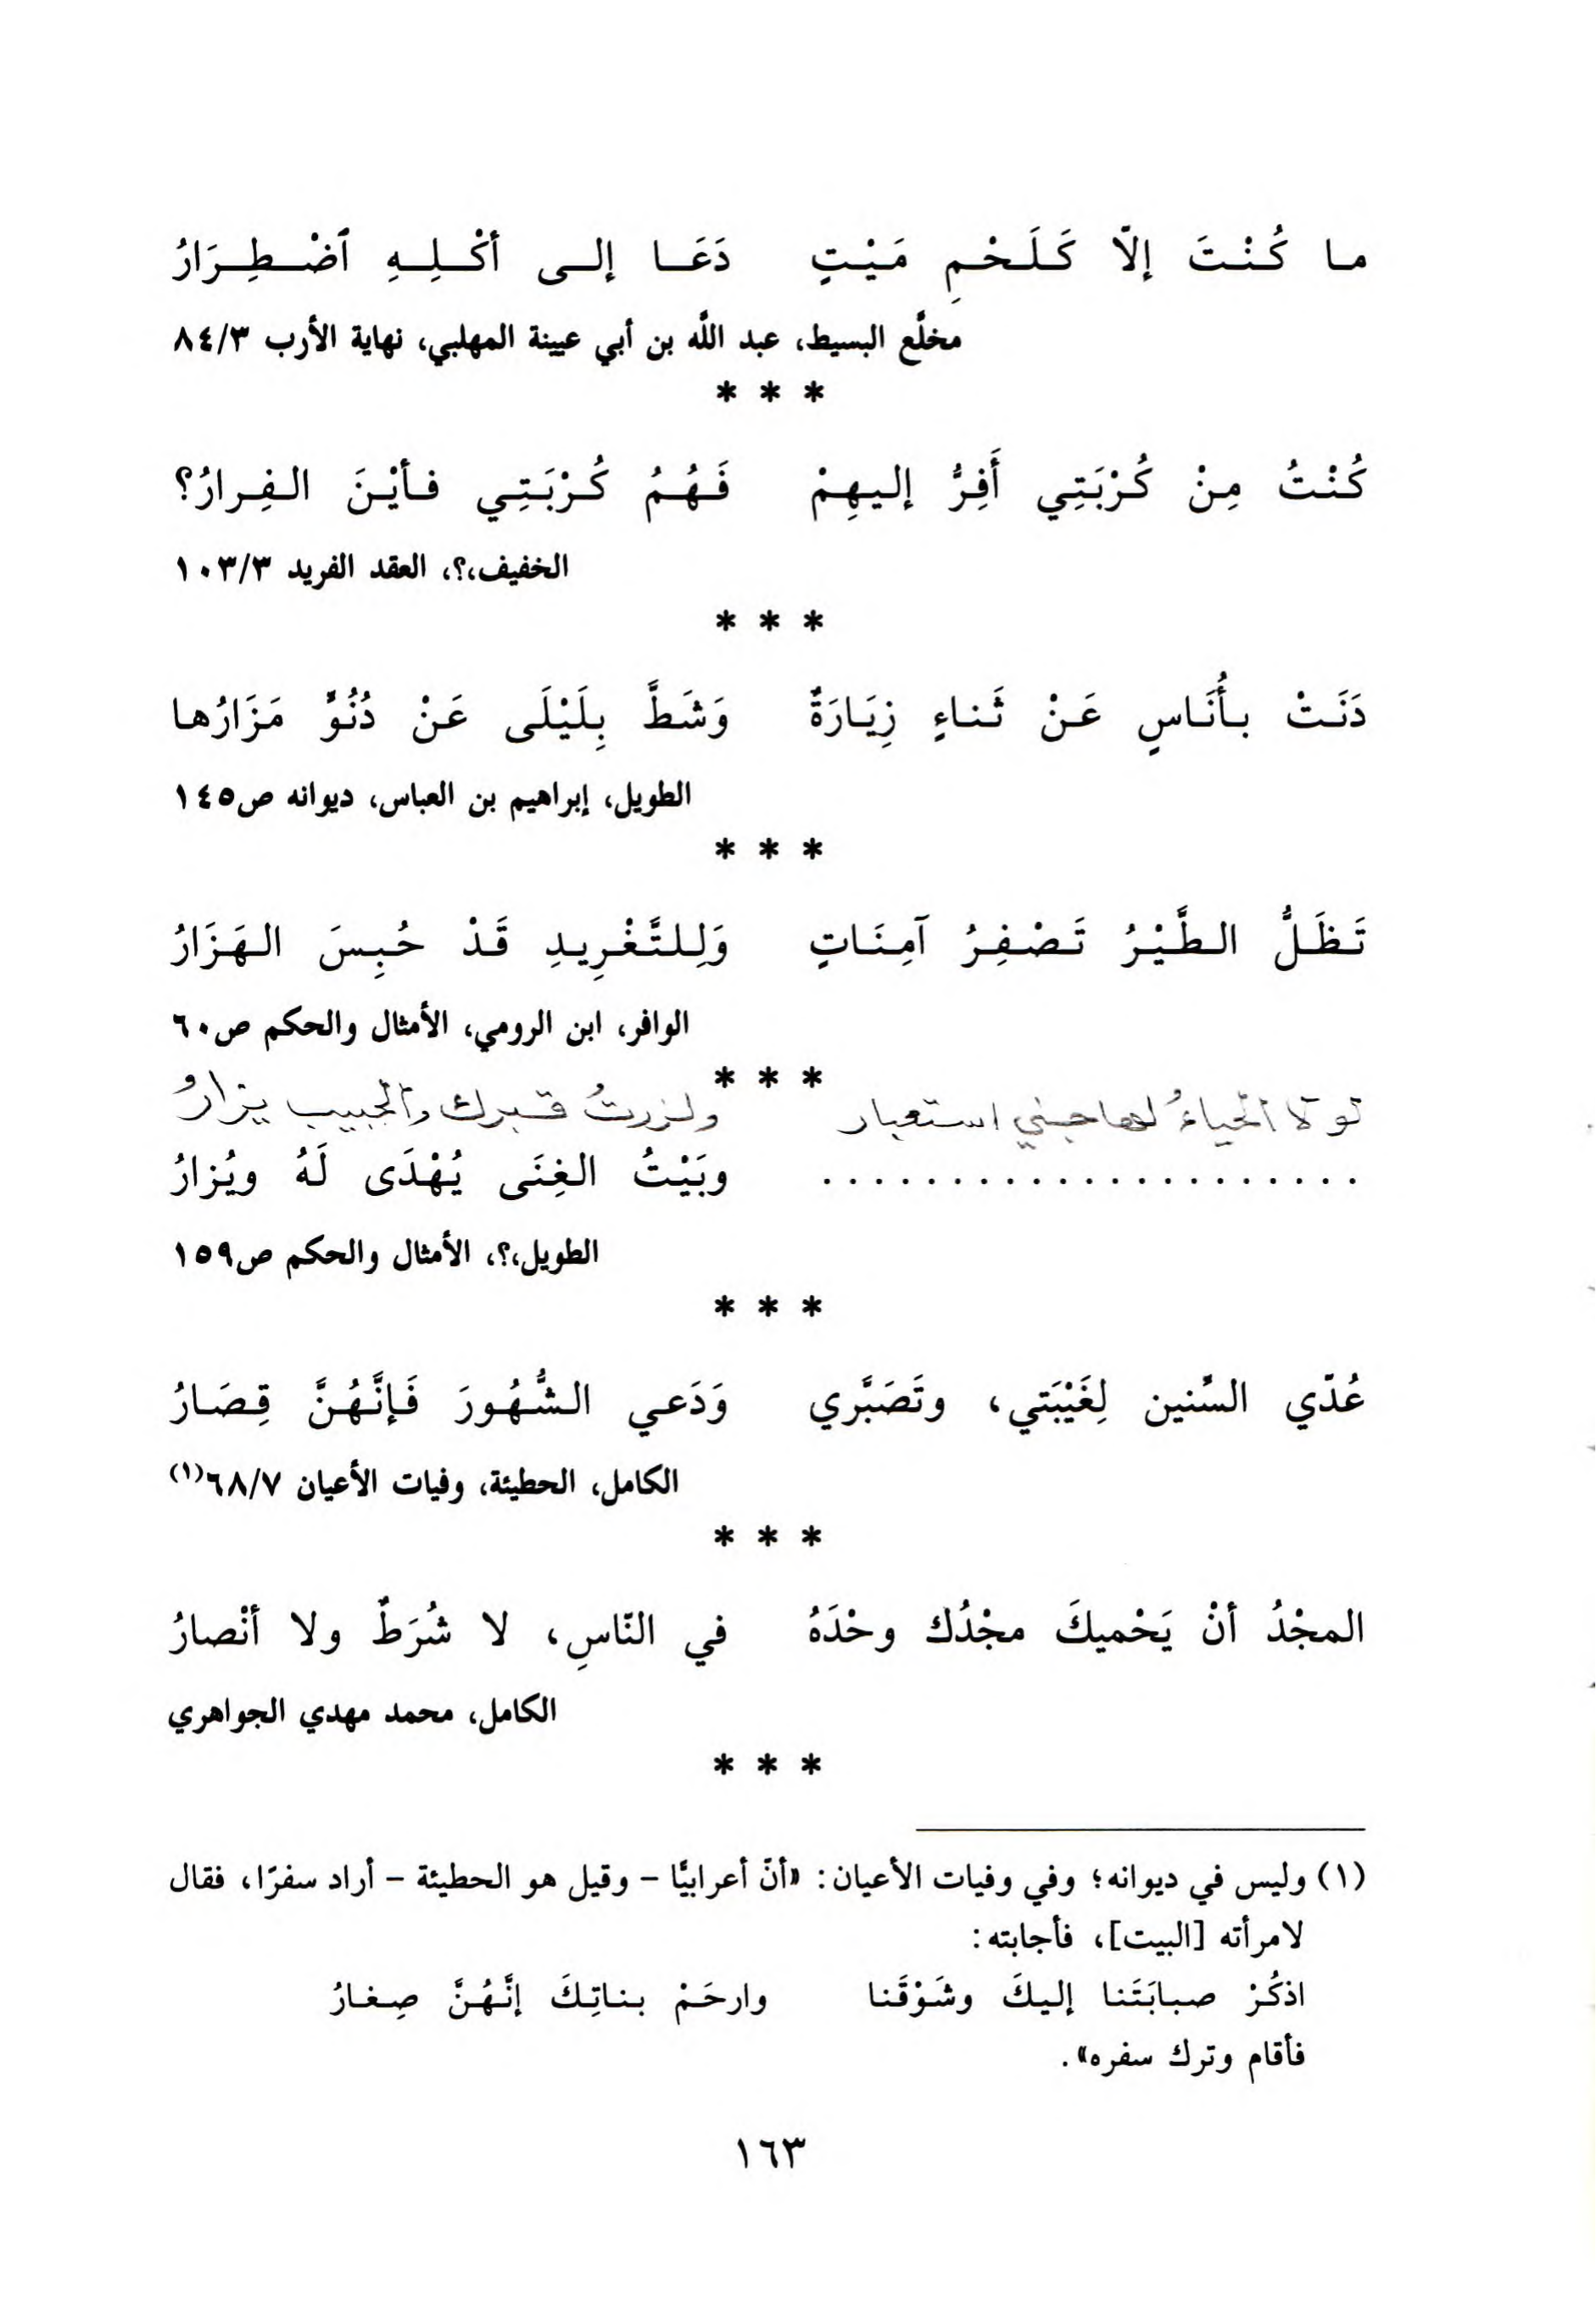 ما كُنْتَ إلّا كَلَحْمِ مَيْتٍ دَعَا إلى أكْلِهِ ٱضْطِرَارُ
مخلَّع البسيط، عبد اللَّه بن أبي عيينة المهلبي، نهاية الأرب ٨٤/٣
* * *
كُنْتُ مِنْ كُرْبَتِي أَفِرُّ إليهِمْ فَهُمُ كُرْبَتِي فأيْنَ الفِرارُ؟
الخفيف،؟، العقد الفريد ١٠٣/٣
* * *
دَنَتْ بأُنَاسٍ عَنْ ثَناءٍ زِيَارَةٌ وَشَطَّ بِلَيْلَى عَنْ دُنُوٍّ مَزَارُها
الطويل، إبراهيم بن العباس، ديوانه ص١٤٥
* * *
تَظَلُّ الطَّيْرُ تَصْفِرُ آمِنَاتٍ وَلِلتَّغْرِيدِ قَدْ حُبِسَ الهَزَارُ
الوافر، ابن الرومي، الأمثال والحكم ص٦٠
* * *
لولا الحياءُ لهاجني استعبار ولزرتُ قبرك والحبيب يزارُ
. . . . . . . . . . . . . . . . . . . . . وبَيْتُ الغِنَى يُهْدَى لَهُ ويُزارُ
الطويل،؟، الأمثال والحكم ص١٥٩
* * *
عُدّي السِّنين لِغَيْبَتي، وتَصَبَّري وَدَعي الشُّهُورَ فَإنَّهُنَّ قِصَارُ
الكامل، الحطيئة، وفيات الأعيان ٦٨/٧(١)
* * *
المجْدُ أنْ يَحْميكَ مجْدُك وحْدَهُ في النّاسِ، لا شُرَطٌ ولا أنْصارُ
الكامل، محمد مهدي الجواهري
* * *
(١) وليس في ديوانه؛ وفي وفيات الأعيان: «أنّ أعرابيًّا – وقيل هو الحطيئة – أراد سفرًا، فقال
لامرأته [البيت]، فأجابته:
اذكُرْ صبابَتَنا إليكَ وشَوْقَنا وارحَمْ بناتِكَ إنَّهُنَّ صِغارُ
فأقام وترك سفره».
١٦٣